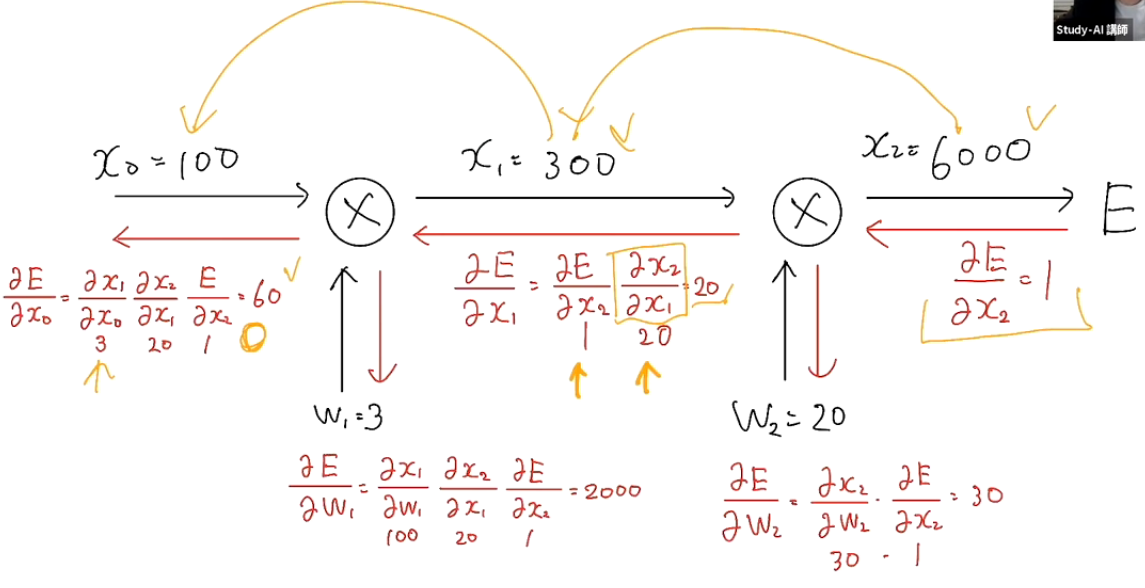 Study-AI 講師
x₀ = 100
x₁ = 300
x₂ = 6000
E
×
×
∂E/∂x₀ = ∂x₁/∂x₀ ∂x₂/∂x₁ E/∂x₂ = 60
3 20 1 0
∂E/∂x₁ = ∂E/∂x₂ ∂x₂/∂x₁ = 20
1 20
∂E/∂x₂ = 1
W₁ = 3
W₂ = 20
∂E/∂W₁ = ∂x₁/∂W₁ ∂x₂/∂x₁ ∂E/∂x₂ = 2000
100 20 1
∂E/∂W₂ = ∂x₂/∂W₂ · ∂E/∂x₂ = 30
30 · 1